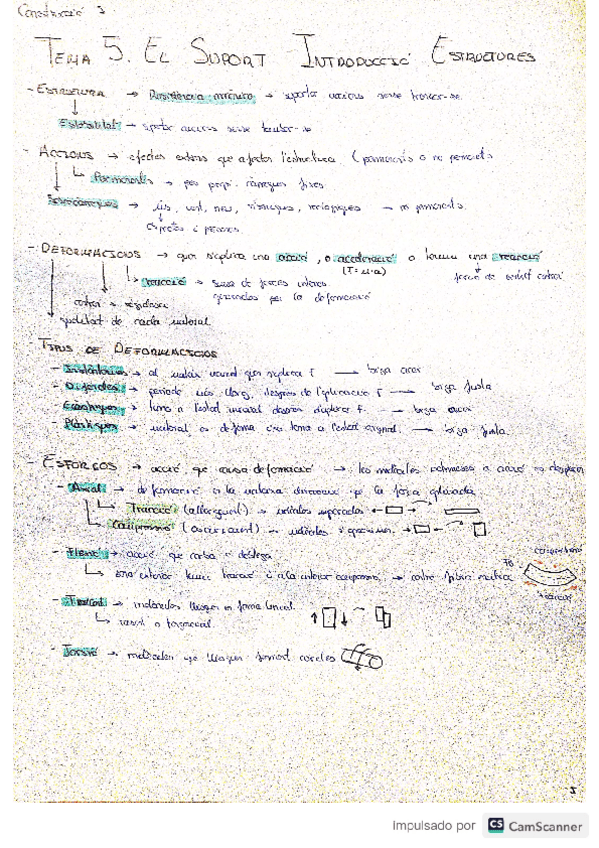 Construcció 3
TEMA 5. EL SUPORT INTRODUCCIÓ ESTRUCTURES
- ESTRUCTURA → Resistència mecànica → suportar accions sense trencar-se.
Estabilitat → suportar accions sense
- ACCIONS → efectes externs que afecten l'estructura. (permanents o no permanents
Permanents → pes propi, càrregues fixes
Sobrecàrregues → ús, vent, neu, sísmiques, → no permanents.
objectes i persones
- DEFORMACIONS → quan s'aplica una acció, o acceleració o tenim una reacció
(F = m·a)
força de sentit contrari
reacció → suma de forces internes
generades per la deformació
contrari → rigidesa
qualitat de cada material
TIPUS DE DEFORMACIONS
- Instantànies → al mateix moment que s'aplica F → biga acer
- Diferides → període més llarg, després de l'aplicació F → biga fusta
- Elàstiques → torna a l'estat inicial després d'aplicar F. → biga acer
- Plàstiques → material es deforma i no torna a l'estat original. → biga fusta
- ESFORÇOS → acció que causa deformació → les molècules
- Axial → deformació en la mateixa direcció que la força aplicada
Tracció (allargament) → molècules separades
Compressió (escurçament) → molècules s'aproximen
- Flexió → acció que corba i doblega
zona exterior tenim tracció i a la interior compressió → entre fibra neutra
compressió
tracció
- Tallant → molècules llisquen en forma lineal
vertical o horitzontal
- Torsió → molècules que llisquen formant cercles
Impulsado por CS CamScanner